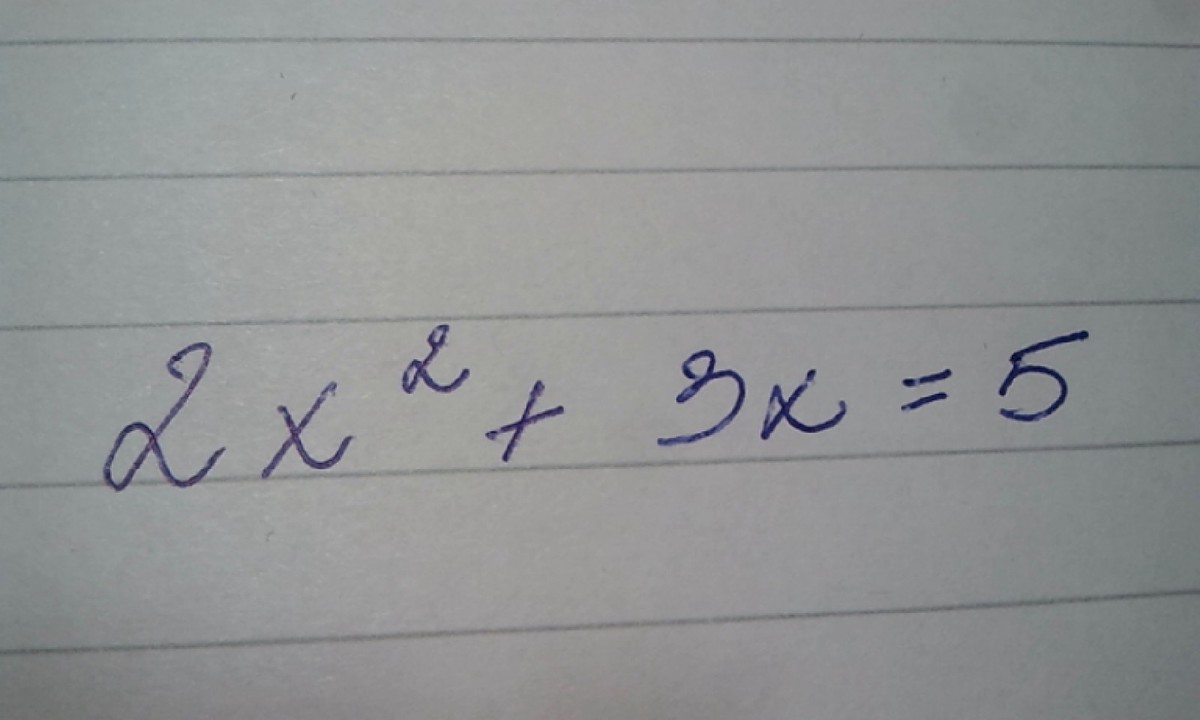 2x² + 3x = 5